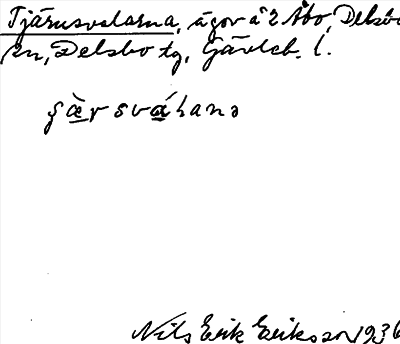 Tjärusvalarna, ägor å 2 Åbo, Delsbo
sn, Delsbo tg, Gävleb. l.
Nils Erik Eriksson 1936